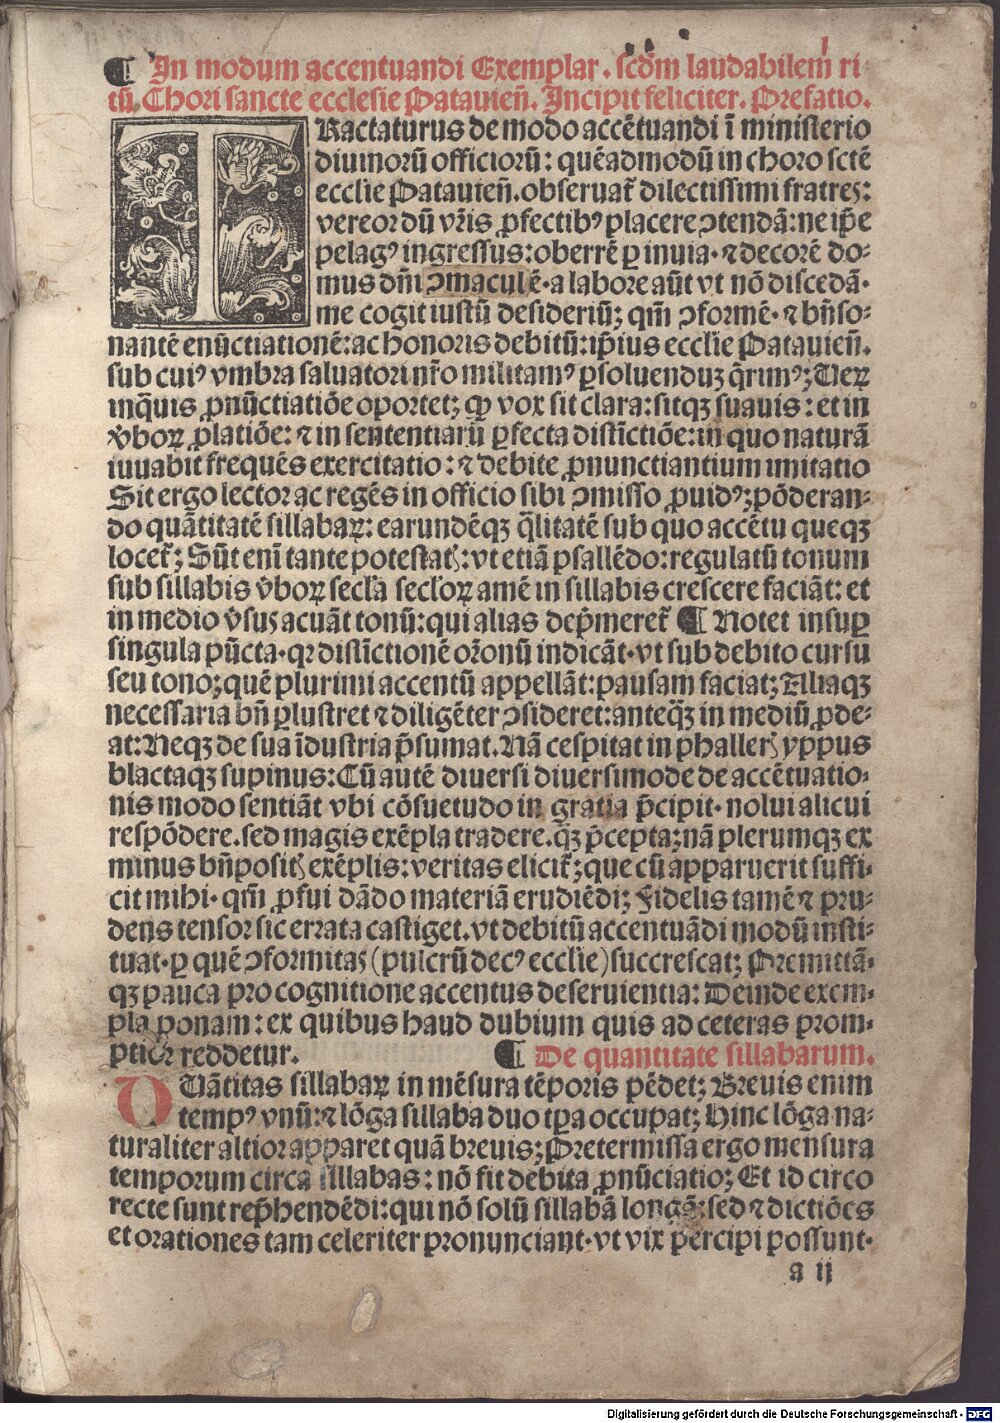 ¶ In modum accentuandi Exemplar. scdm̄ laudabilem ri-
tū Chori sancte ecclesie Patauieñ. Incipit feliciter. Prefatio.
TRactaturus de modo accētuandi ī ministerio
diuinorū officiorū: quēadmodū in choro sctē
ecclīe Patauieñ. obseruat᷑ dilectissimi fratres:
vereor dū vr̄is ꝓfectibꝰ placere ꝯtendā: ne ip̄e
pelagꝰ ingressus: oberrē ꝑ inuia. ⁊ decorē do-
mus dn̄i ꝯmaculē. a labore aūt vt nō discedā.
me cogit iustū desideriū; qm̄ ꝯformē. ⁊ bn̄so-
nantē enūctiationē: ac honoris debitū: ip̄ius ecclīe Patauieñ.
sub cuiꝰ vmbra saluatori nr̄o militamꝰ ꝑsoluenduꝫ q̄rimꝰ; Ueꝝ
inq̄uis ꝓnūctiatiōe oportet; ꝙ vox sit clara: sitqꝫ suauis: et in
v̓boꝝ ꝓlatiōe: ⁊ in sententiarū ꝑfecta distīctiōe: in quo naturā
iuuabit frequēs exercitatio: ⁊ debite ꝓnunctiantium imitatio
Sit ergo lector ac regēs in officio sibi ꝯmisso ꝓuidꝰ; pōderan-
do quātitatē sillabaꝝ: earundēqꝫ q̄litatē sub quo accētu queqꝫ
locet᷑; Sūt enī tante potestatꝭ: vt etiā psallēdo: regulatū tonum
sub sillabis v̓boꝝ secl̄a secl̄oꝝ amē in sillabis crescere faciāt: et
in medio v̓sus acuāt tonū: qui alias dep̄meret᷑ ¶ Notet insuꝑ
singula pūcta. qꝛ distīctionē or̄onū indicāt. vt sub debito cursu
seu tono; quē plurimi accentū appellāt: pausam faciat; Aliaqꝫ
necessaria bn̄ ꝑlustret ⁊ diligēter ꝯsideret: anteq̄ꝫ in mediū ꝓde-
at: Neqꝫ de sua īdustria p̄sumat. Nā cespitat in phallerꝭ yppus
blactaqꝫ supinus: Cū autē diuersi diuersimode de accētuatio-
nis modo sentiāt vbi cōsuetudo in gratia p̄cipit. nolui alicui
respōdere. sed magis exēpla tradere. q̄ꝫ p̄cepta; nā plerumqꝫ ex
minus bn̄positꝭ exēplis: veritas elicit᷑; que cū apparuerit suffi-
cit mihi. qm̄ ꝓfui dādo materiā erudiēdi; Fidelis tamē ⁊ pru-
dens tensor sic errata castiget. vt debitū accentuādi modū insti-
tuat. ꝑ quē ꝯformitas (pulcrū decꝰ ecclīe) succrescat; Premittā-
qꝫ pauca pro cognitione accentus deseruientia: Deinde exem-
pla ponam: ex quibus haud dubium quis ad ceteras prom-
ptior reddetur. ¶ De quantitate sillabarum.
QUātitas sillabaꝝ in mēsura tēporis pēdet; Breuis enim
tempꝰ vnū: ⁊ lōga sillaba duo tp̄a occupat; Hinc lōga na-
turaliter altior apparet quā breuis; Pretermissa ergo mensura
temporum circa sillabas: nō fit debita ꝓnūciatio; Et id circo
recte sunt rep̄hendēdi: qui nō solū sillabā longā: sed ⁊ dictiōes
et orationes tam celeriter pronunciant. vt vix percipi possunt.
a ij
Digitalisierung gefördert durch die Deutsche Forschungsgemeinschaft - DFG